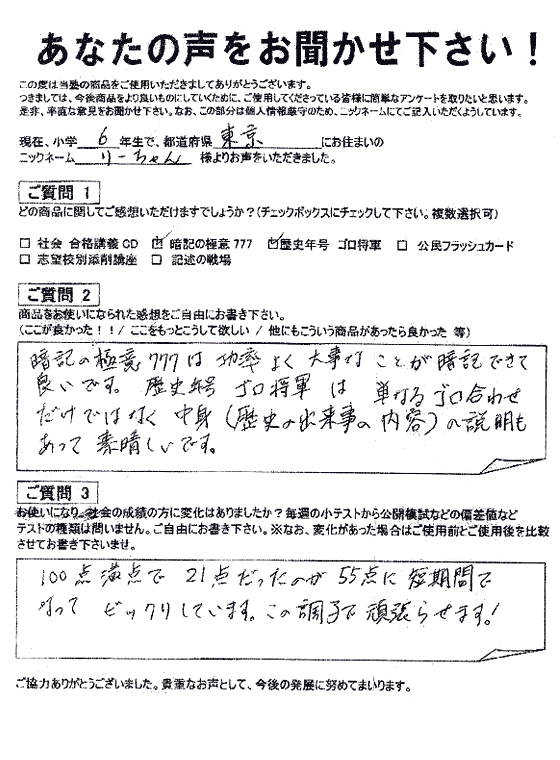 あなたの声をお聞かせ下さい！
この度は当塾の商品をご使用いただきましてありがとうございます。
つきましては、今後商品をより良いものにしていくために、ご使用してくださっている皆様に簡単なアンケートを取りたいと思います。
是非、率直な意見をお聞かせ下さい。なお、この部分は個人情報厳守のため、ニックネームにてご記入いただくようしています。
現在、小学 6 年生で、都道府県 東京 にお住まいの
ニックネーム りーちゃん 様よりお声をいただきました。
ご質問 1
どの商品に関してご感想いただけますでしょうか？(チェックボックスにチェックして下さい。複数選択可)
□ 社会 合格講義CD ☑ 暗記の極意777 ☑歴史年号 ゴロ将軍 □ 公民フラッシュカード
□ 志望校別添削講座 □ 記述の戦場
ご質問 2
商品をお使いになられた感想をご自由にお書き下さい。
(ここが良かった！！/ ここをもっとこうして欲しい / 他にもこういう商品があったら良かった 等)
暗記の極意777は功率よく大事なことが暗記できて
良いです。歴史年号 ゴロ将軍 は 単なるゴロ合わせ
だけではなく 中身(歴史の出来事の内容)の説明も
あって 素晴しいです。
ご質問 3
お使いになり、社会の成績の方に変化はありましたか？毎週の小テストから公開模試などの偏差値など
テストの種類は問いません。ご自由にお書き下さい。※なお、変化があった場合はご使用前とご使用後を比較
させてお書き下さいませ。
100点満点で 21点だったのが 55点に短期間で
なって ビックリしています。この調子で頑張らせます！
ご協力ありがとうございました。貴重なお声として、今後の発展に努めてまいります。